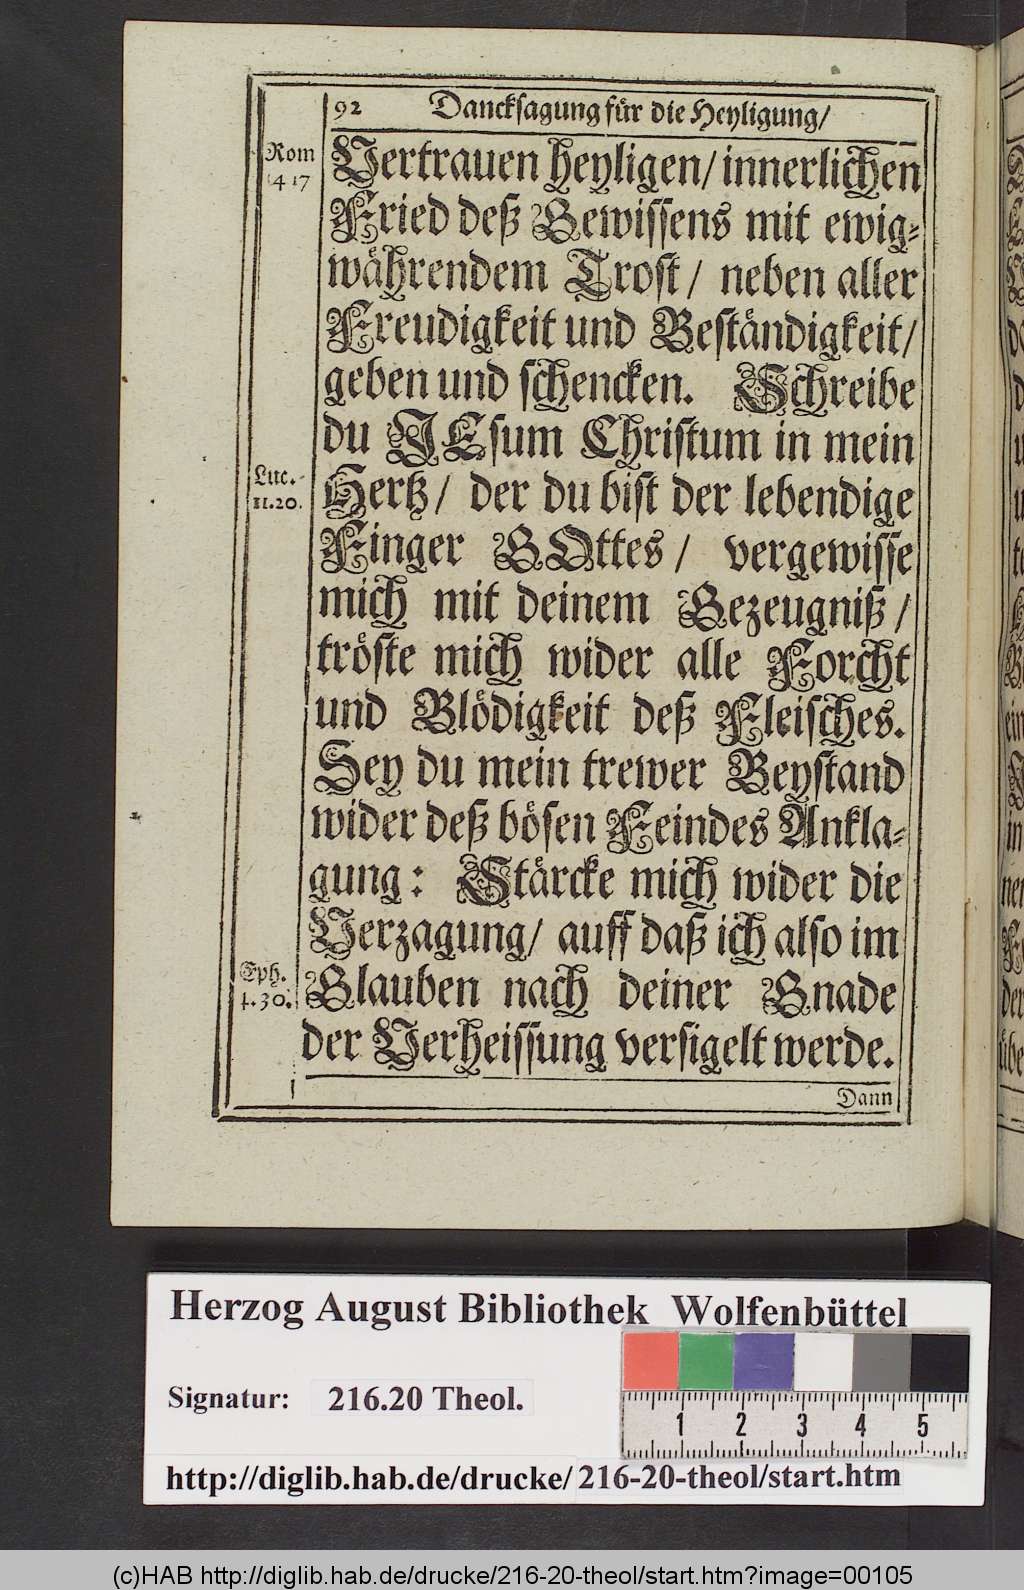 92 Dancksagung für die Heyligung/
Rom
14 17
Vertrauen heyligen/ innerlichen
Fried deß Gewissens mit ewig-
währendem Trost/ neben aller
Freudigkeit und Beständigkeit/
geben und schencken. Schreibe
du JEsum Christum in mein
Luc.
11.20.
Hertz/ der du bist der lebendige
Finger GOttes/ vergewisse
mich mit deinem Gezeugniß/
tröste mich wider alle Forcht
und Blödigkeit deß Fleisches.
Sey du mein trewer Beystand
wider deß bösen Feindes Ankla-
gung: Stärcke mich wider die
Verzagung/ auff daß ich also im
Eph.
4.30.
Glauben nach deiner Gnade
der Verheissung versigelt werde.
Dann
Herzog August Bibliothek Wolfenbüttel
Signatur: 216.20 Theol.
1 2 3 4 5
http://diglib.hab.de/drucke/216-20-theol/start.htm
(c)HAB http://diglib.hab.de/drucke/216-20-theol/start.htm?image=00105